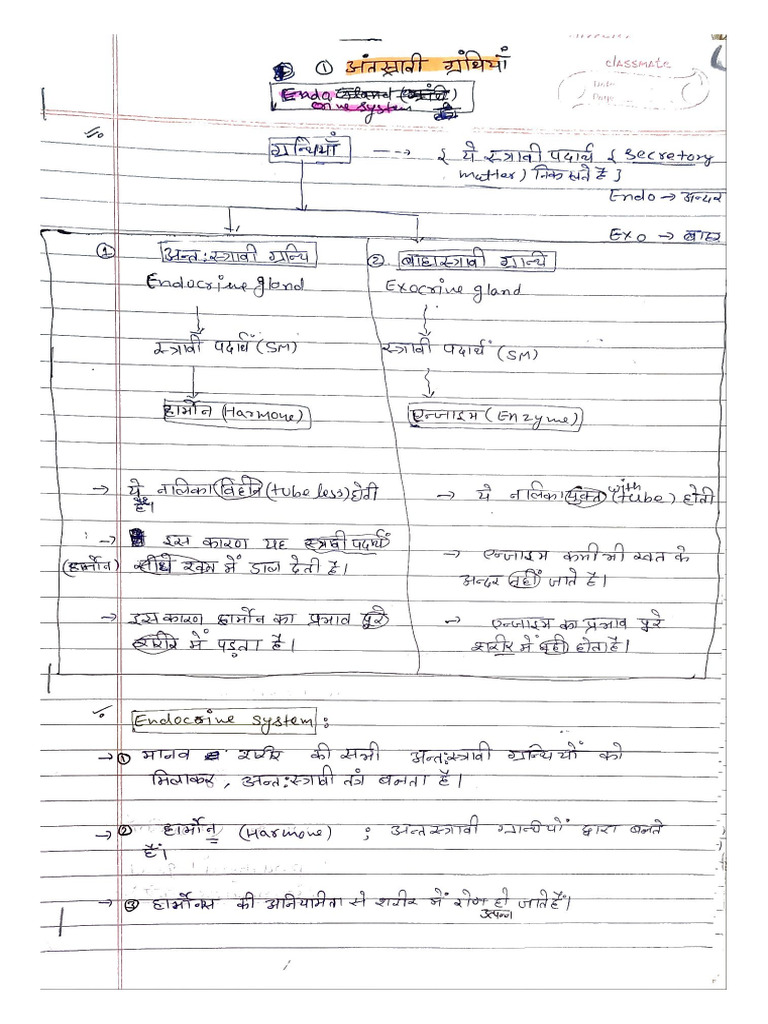 ① अंतस्रावी ग्रंथियाँ
classmate
Date
Page
Endocrine system
ग्रन्थियाँ ---> { ये स्त्रावी पदार्थ { Secretory
matter) निकालते है }
Endo → अन्दर
Exo → बाहर
① अन्त:स्त्रावी ग्रन्थि
Endocrine gland
स्त्रावी पदार्थ (SM)
हार्मोन (Harmone)
→ ये नलिका विहीन (tube less) होती
है।
→ इस कारण यह स्त्रावी पदार्थ
(हार्मोन) सीधे रक्त में डाल देती है।
→ इस कारण हार्मोन का प्रभाव पूरे
शरीर में पड़ता है।
② बाह्यस्त्रावी ग्रन्थि
Exocrine gland
स्त्रावी पदार्थ (SM)
एन्जाइम (Enzyme)
→ ये नलिका युक्त (with tube) होती
→ एन्जाइम कभी भी रक्त के
अन्दर नहीं जाते है।
→ एन्जाइम का प्रभाव पूरे
शरीर में नही होता है।
Endocrine system :
→ ① मानव शरीर की सभी अन्त:स्त्रावी ग्रन्थियों को
मिलाकर, अन्त:स्त्रावी तंत्र बनता है।
→ ② हार्मोन (Harmone) : अन्तस्त्रावी ग्रन्थीयों द्वारा बनते
हैं।
→ ③ हार्मोनस की अनियामीता से शरीर में रोग उत्पन्न हो जाते हैं।